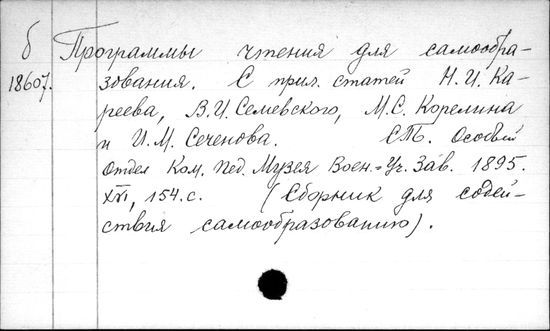 б Программы чтения для самообра-
18607. зования. С прил. статей Н.И. Ка-
реева, В.И. Семевского, М.С. Корелина
и И.М. Сеченова. СПб. Особый
Отдел Ком. Пед. Музея Воен.-Уч. Зав. 1895.
XVI, 154 с. (Сборник для содей-
ствия самообразованию).